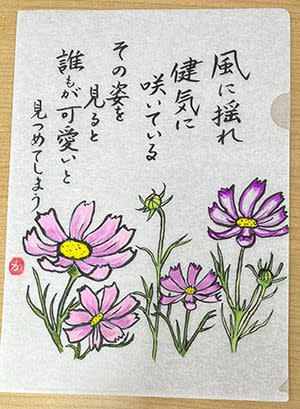 風に揺れ
健気に
咲いている
その姿を
見ると
誰もが可愛いと
見つめてしまう
か